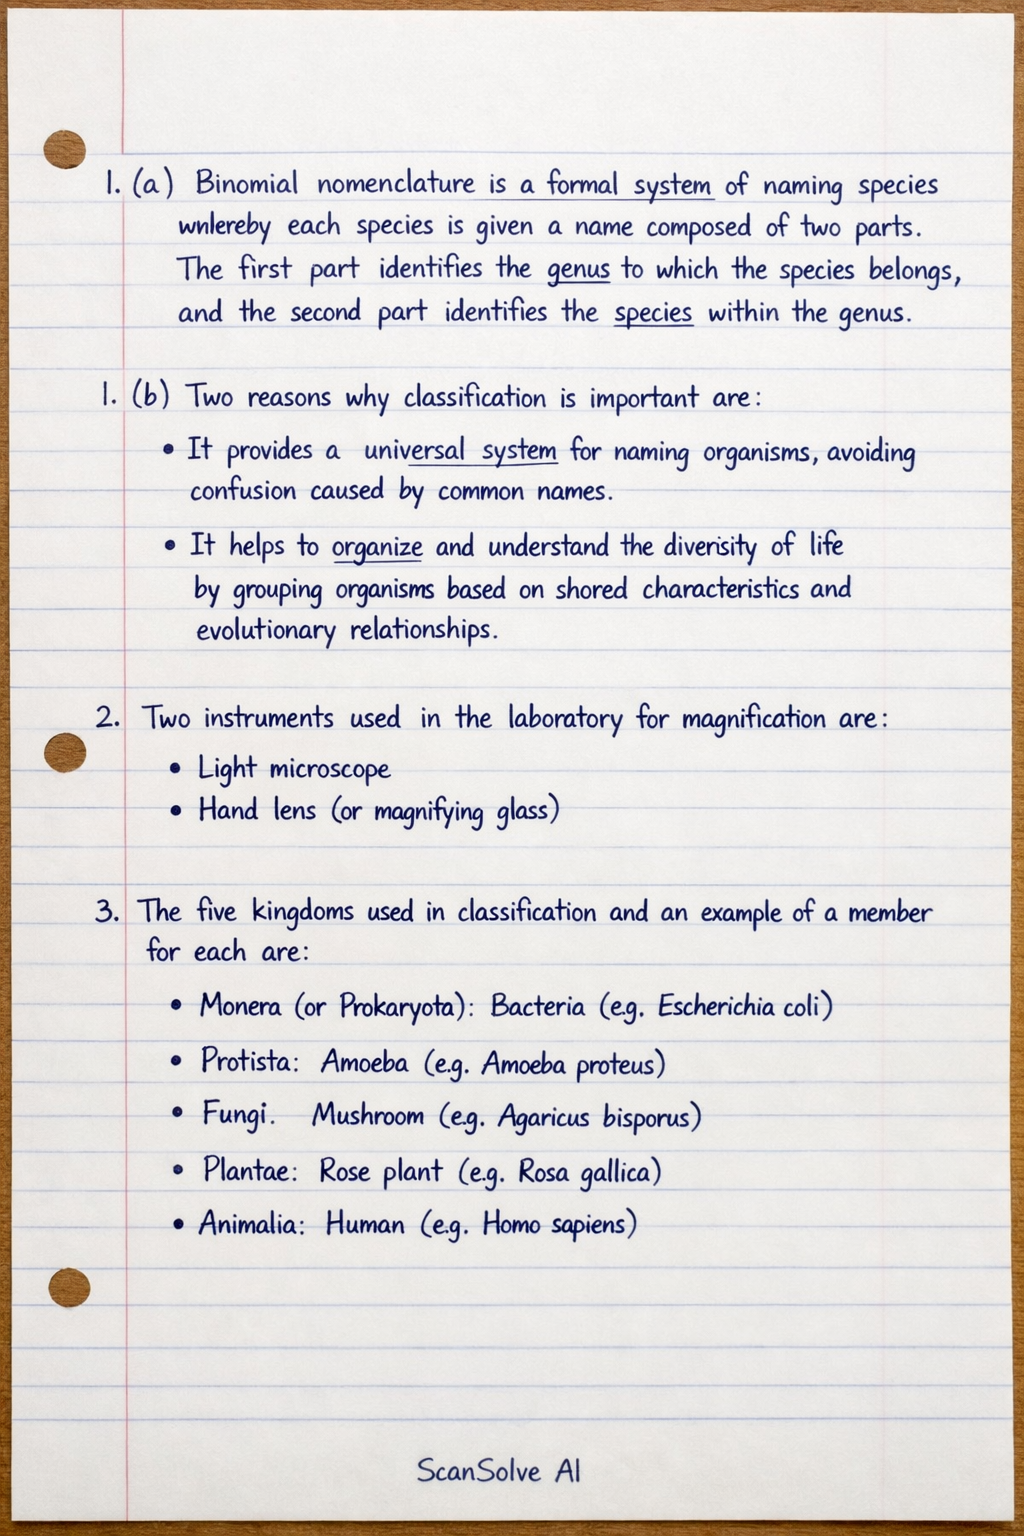 1. (a) Binomial nomenclature is a formal system of naming species
wnlereby each species is given a name composed of two parts.
The first part identifies the genus to which the species belongs,
and the second part identifies the species within the genus.
1. (b) Two reasons why classification is important are:
• It provides a universal system for naming organisms, avoiding
confusion caused by common names.
• It helps to organize and understand the diverisity of life
by grouping organisms based on shored characteristics and
evolutionary relationships.
2. Two instruments used in the laboratory for magnification are:
• Light microscope
• Hand lens (or magnifying glass)
3. The five kingdoms used in classification and an example of a member
for each are:
• Monera (or Prokaryota): Bacteria (e.g. Escherichia coli)
• Protista: Amoeba (e.g. Amoeba proteus)
• Fungi. Mushroom (e.g. Agaricus bisporus)
• Plantae: Rose plant (e.g. Rosa gallica)
• Animalia: Human (e.g. Homo sapiens)
ScanSolve AI